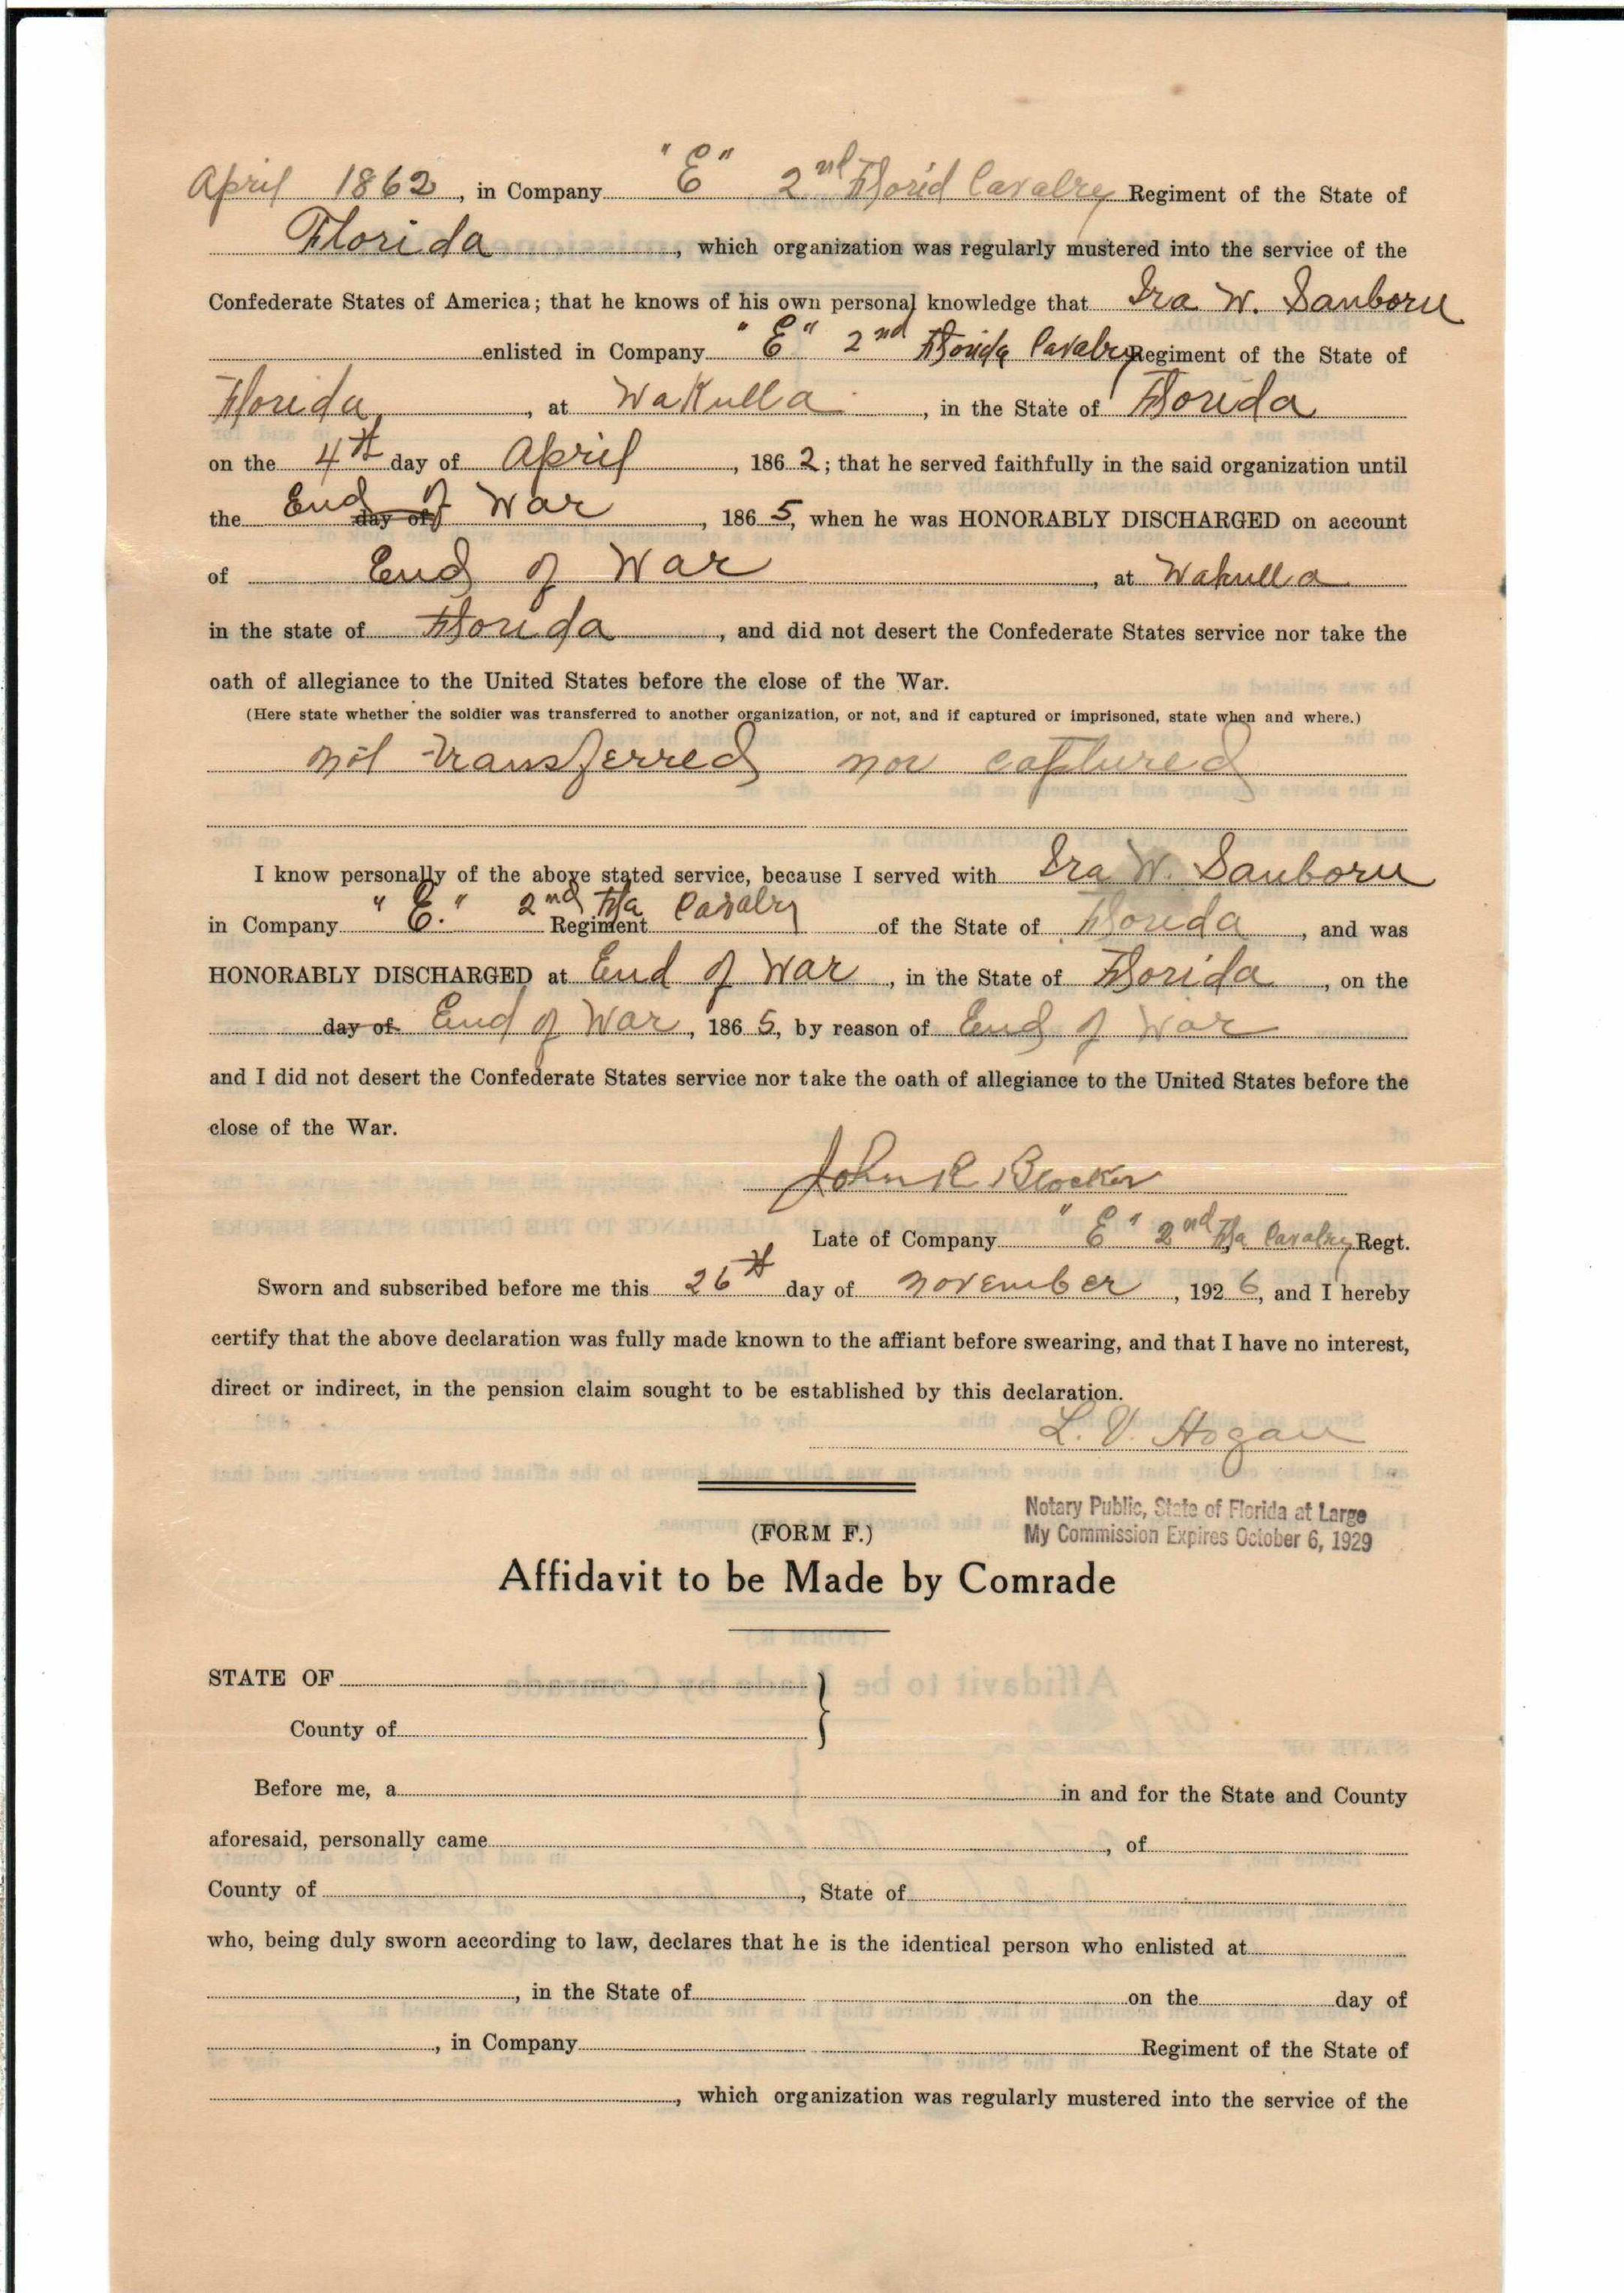 April 1862, in Company "E" 2nd Florid Cavalry Regiment of the State of
Florida, which organization was regularly mustered into the service of the
Confederate States of America; that he knows of his own personal knowledge that Ira W. Sanborn
enlisted in Company "E" 2nd Florida Cavalry Regiment of the State of
Florida, at Wakulla, in the State of Florida
on the 4th day of April, 1862; that he served faithfully in the said organization until
the End day of of War, 1865, when he was HONORABLY DISCHARGED on account
of End of War, at Wakulla
in the state of Florida, and did not desert the Confederate States service nor take the
oath of allegiance to the United States before the close of the War.
(Here state whether the soldier was transferred to another organization, or not, and if captured or imprisoned, state when and where.)
not transferred nor captured
I know personally of the above stated service, because I served with Ira W. Sanborn
in Company "E." 2nd Fla Regiment Cavalry of the State of Florida, and was
HONORABLY DISCHARGED at End of War, in the State of Florida, on the
day of End of War, 1865, by reason of End of War
and I did not desert the Confederate States service nor take the oath of allegiance to the United States before the
close of the War.
John R Blocker
Late of Company "E" 2nd Fla Cavalry Regt.
Sworn and subscribed before me this 26th day of November, 1926, and I hereby
certify that the above declaration was fully made known to the affiant before swearing, and that I have no interest,
direct or indirect, in the pension claim sought to be established by this declaration.
L. V. Hogan
Notary Public, State of Florida at Large
My Commission Expires October 6, 1929
(FORM F.)
Affidavit to be Made by Comrade
STATE OF
County of
Before me, a in and for the State and County
aforesaid, personally came, of
County of, State of
who, being duly sworn according to law, declares that he is the identical person who enlisted at
, in the State of on the day of
, in Company Regiment of the State of
, which organization was regularly mustered into the service of the